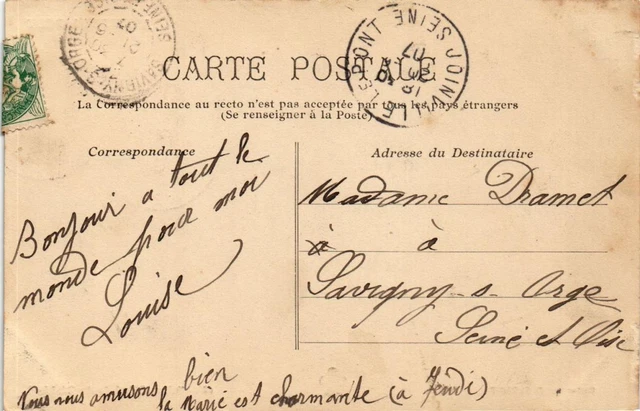 SAVIGNY-S-ORGE
SEINE
JOINVILLE LE PONT
SEINE
18
07
CARTE POSTALE
La Correspondance au recto n'est pas acceptée par tous les pays étrangers
(Se renseigner à la Poste)
Correspondance
Bonjour a tout le
monde pour moi
Louise
Adresse du Destinataire
Madame Dramet
à à
Savigny-s-Orge
Seine et Oise
Nous nous amusons bien
la Marié est charmante (à Jeudi)